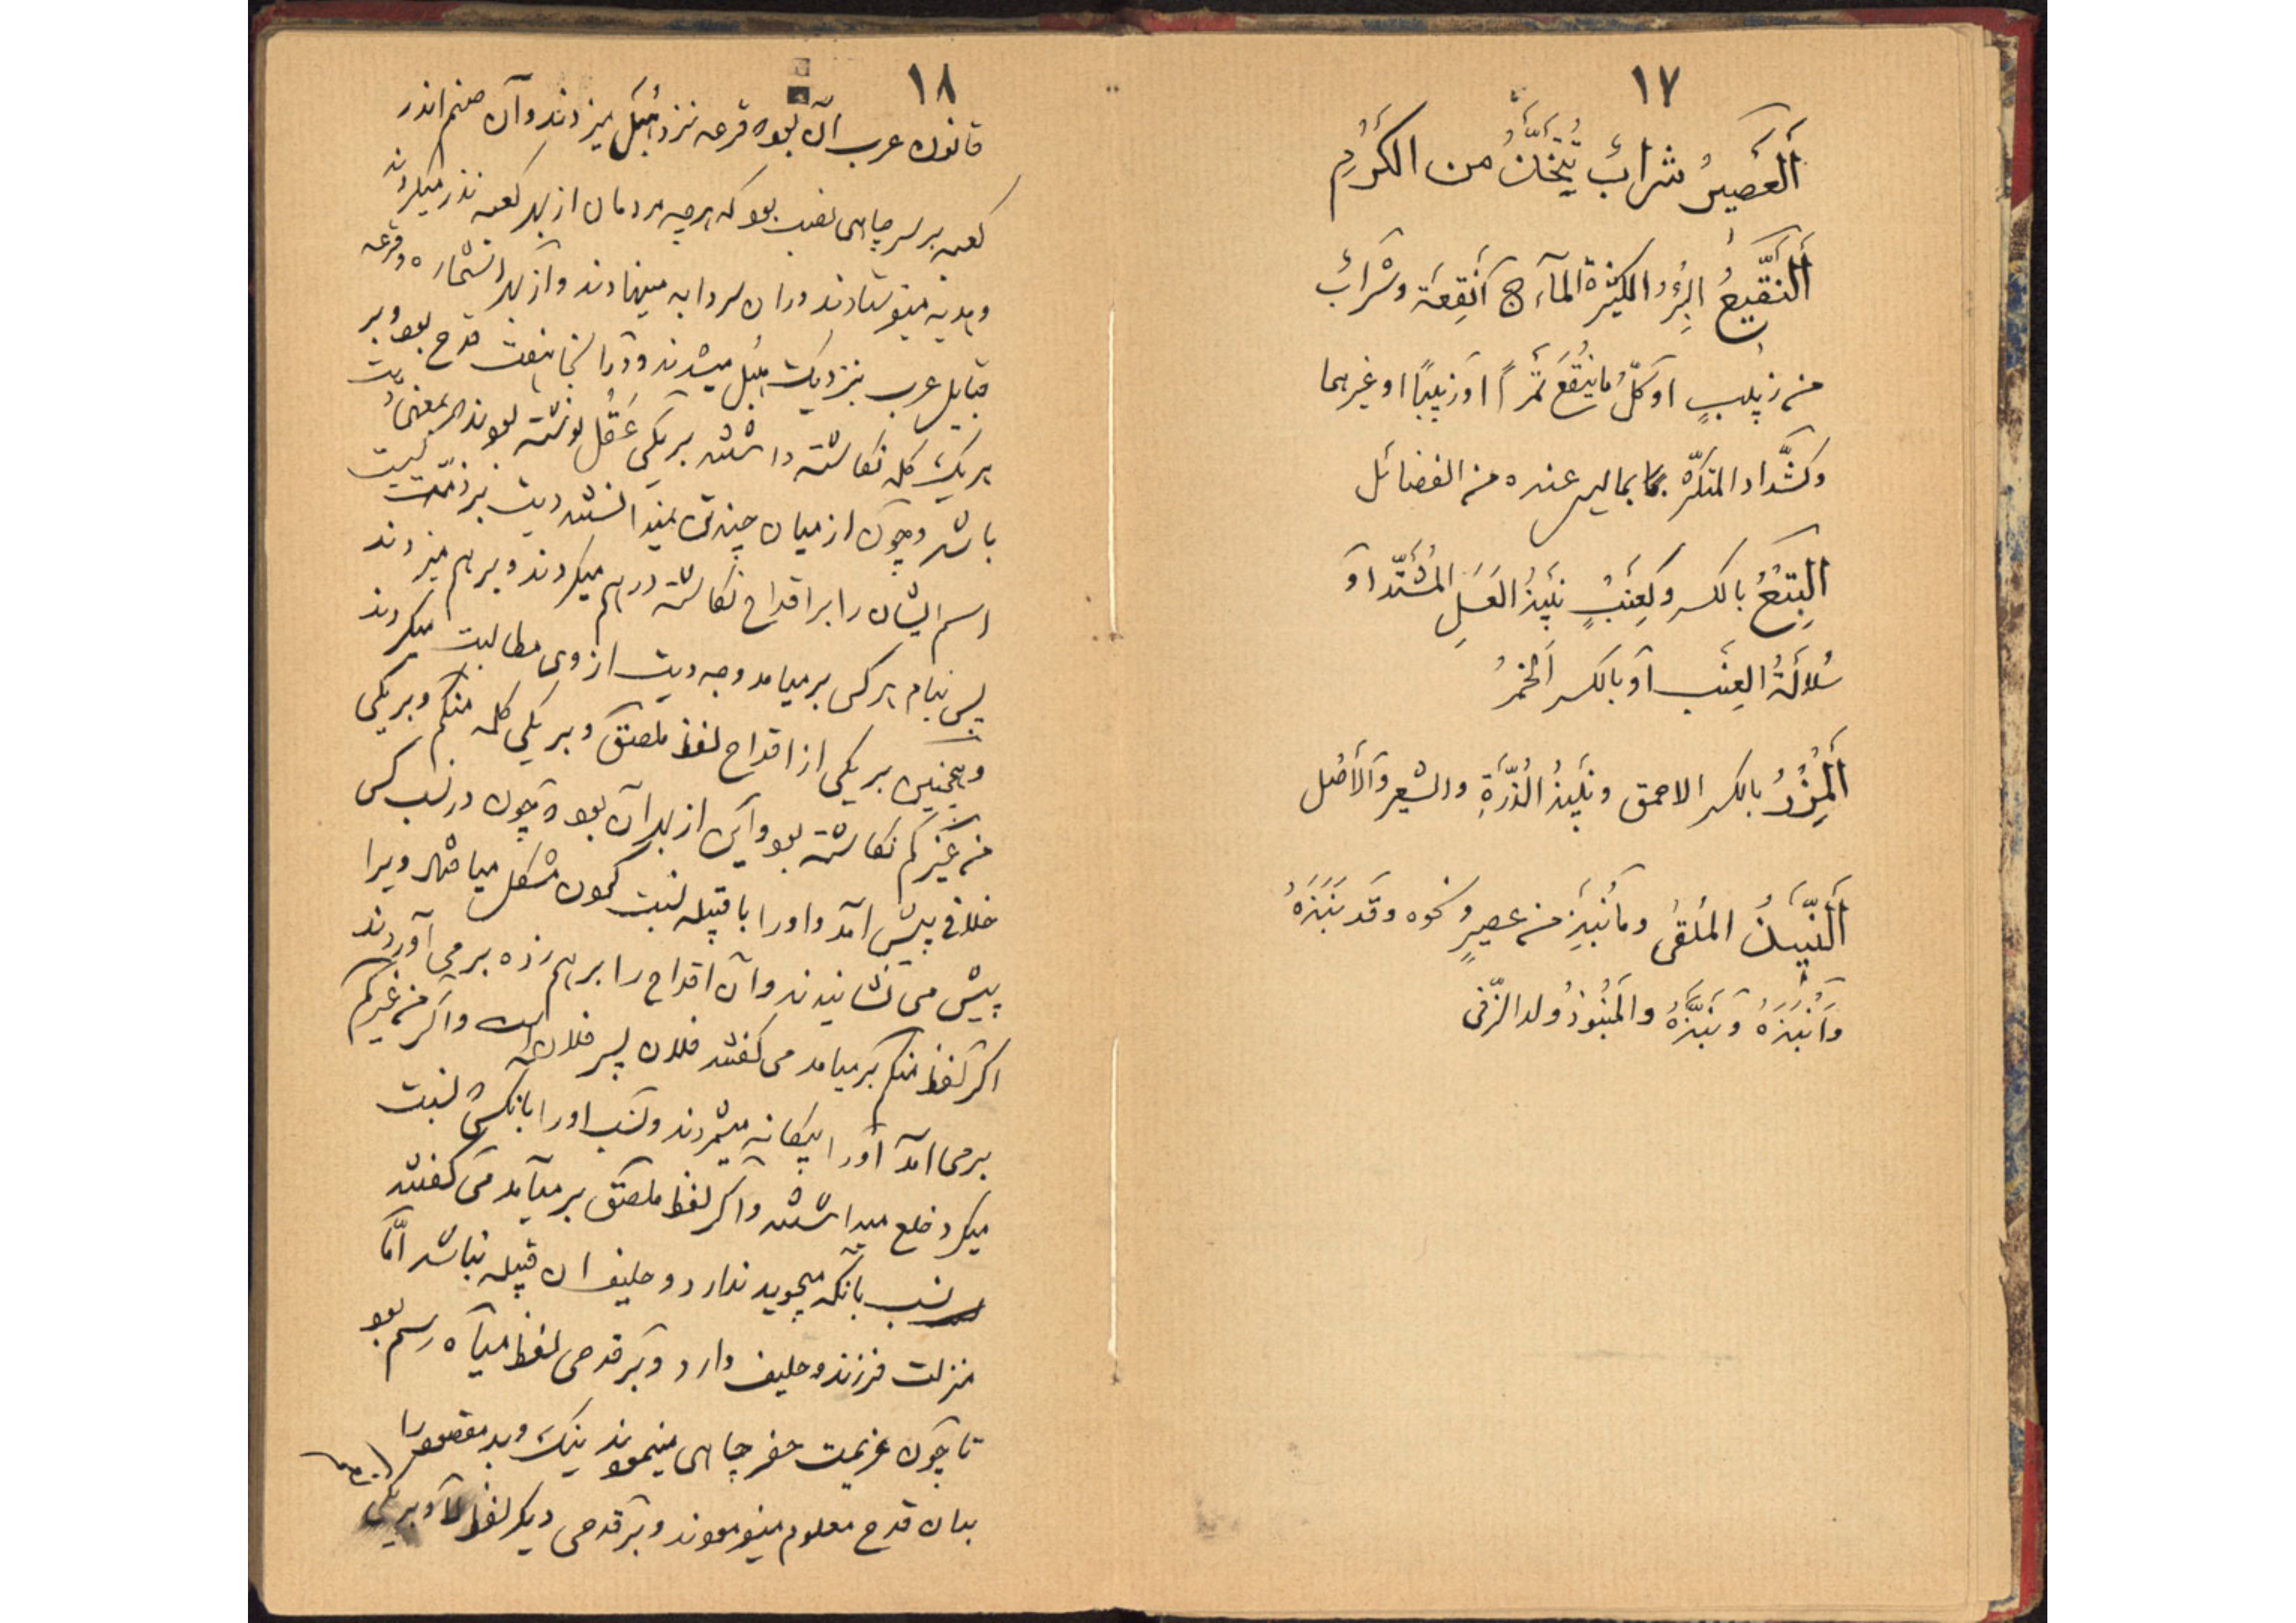 ١٧
أَلعَصيرُ شرابٌ يُتَّخَذُ من الكَرْمِ
أَلنَّقيعُ البِئرُ الكثيرة المآء ج أَنقِعَة وشَرابٌ
من زبيبٍ او كلّ ما يُنقَعُ تَمراً او زبيبًا او غيرهما
وكشَّداد المتكثّر بما ليس عنده من الفضائل
البِتعُ بالكسر وكعِنَبٍ نَبيذُ العَسَلِ المُشتَدّ او
سُلالَةُ العِنَب او بالكسر الخمرُ
أَلمِزرُ بالكسر الاحمق ونَبيذُ الذُرَةِ والشعير والأصل
أَلنَّبيذُ المُلقىٰ وما نُبِذَ من عصيرٍ ونحوه وقد نَبَذَهُ
وأَنبَذَهُ ونَبَّذَهُ والمَنبُوذُ ولد الزّنى
١٨
قانون عرب آن بود که قرعه نزد هُبَل میزدند و آن صنم اندر
کعبه بر سر چاهی نصب بود که هرچه مردمان از بهر کعبه نذر میکردند
و هدیه میفرستادند در ان سردابه مینهادند و از بهر استخاره و قرعه
قبایل عرب بنزدیک هبل میشدند و در آنجا هفت قدح بود و بر
هریک کلمه نکاشته داشتند بر یکی عَقل نوشته بودند بمعنی دیت
باشد و چون از میان چند تن نمیدانستند دیت بر ذمّت کیست
اسم ایشان را بر اقداح نکاشته درهم میکردند و بر هم میزدند
پس بنام هرکس برمیامد وجه دیت از وی مطالبت میکردند
و همچنین بر یکی از اقداح لفظ ملصق و بر یکی کلمه منکم و بر یکی
من غیرکم نکاشته بود و این از بهر آن بود که چون در نسب کسی
خلافی پیش آمد و او را با قبیله نسبت کردن مشکل میافتاد ویرا
پیش می نشانیدند و آن اقداح را برهم زده بر می آوردند
اکر لفظ منکم برمیامد می کفتند فلان پسر فلان است و اکر من غیرکم
برمی امد او را بیکانه میشمردند و نسب او را بانکس که نسبت
میکرد خلع میداشتند و اکر لفظ ملصق بر میآمد می کفتند
نسب بانکه میجوید ندارد و حلیف ان قبیله نباشد امّا
منزلت فرزند و حلیف دارد و بر قدحی لفظ میاه رسم بود
تا چون عزیمت حفر چاهی مینمودند نیک و بد مقصود را
بدان قدح معلوم مینمودند و بر قدحی دیکر لفظ لا و بر یکی